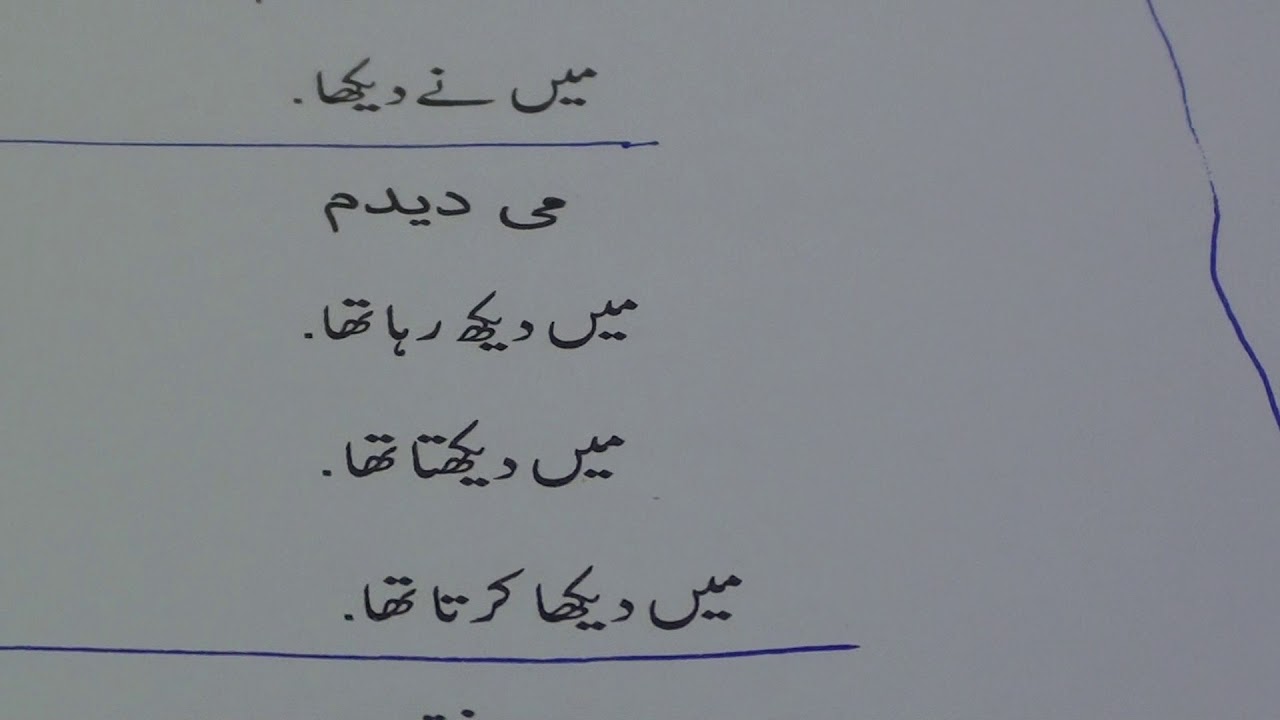 میں نے دیکھا.
می دیدم
میں دیکھ رہا تھا.
میں دیکھتا تھا.
میں دیکھا کرتا تھا.